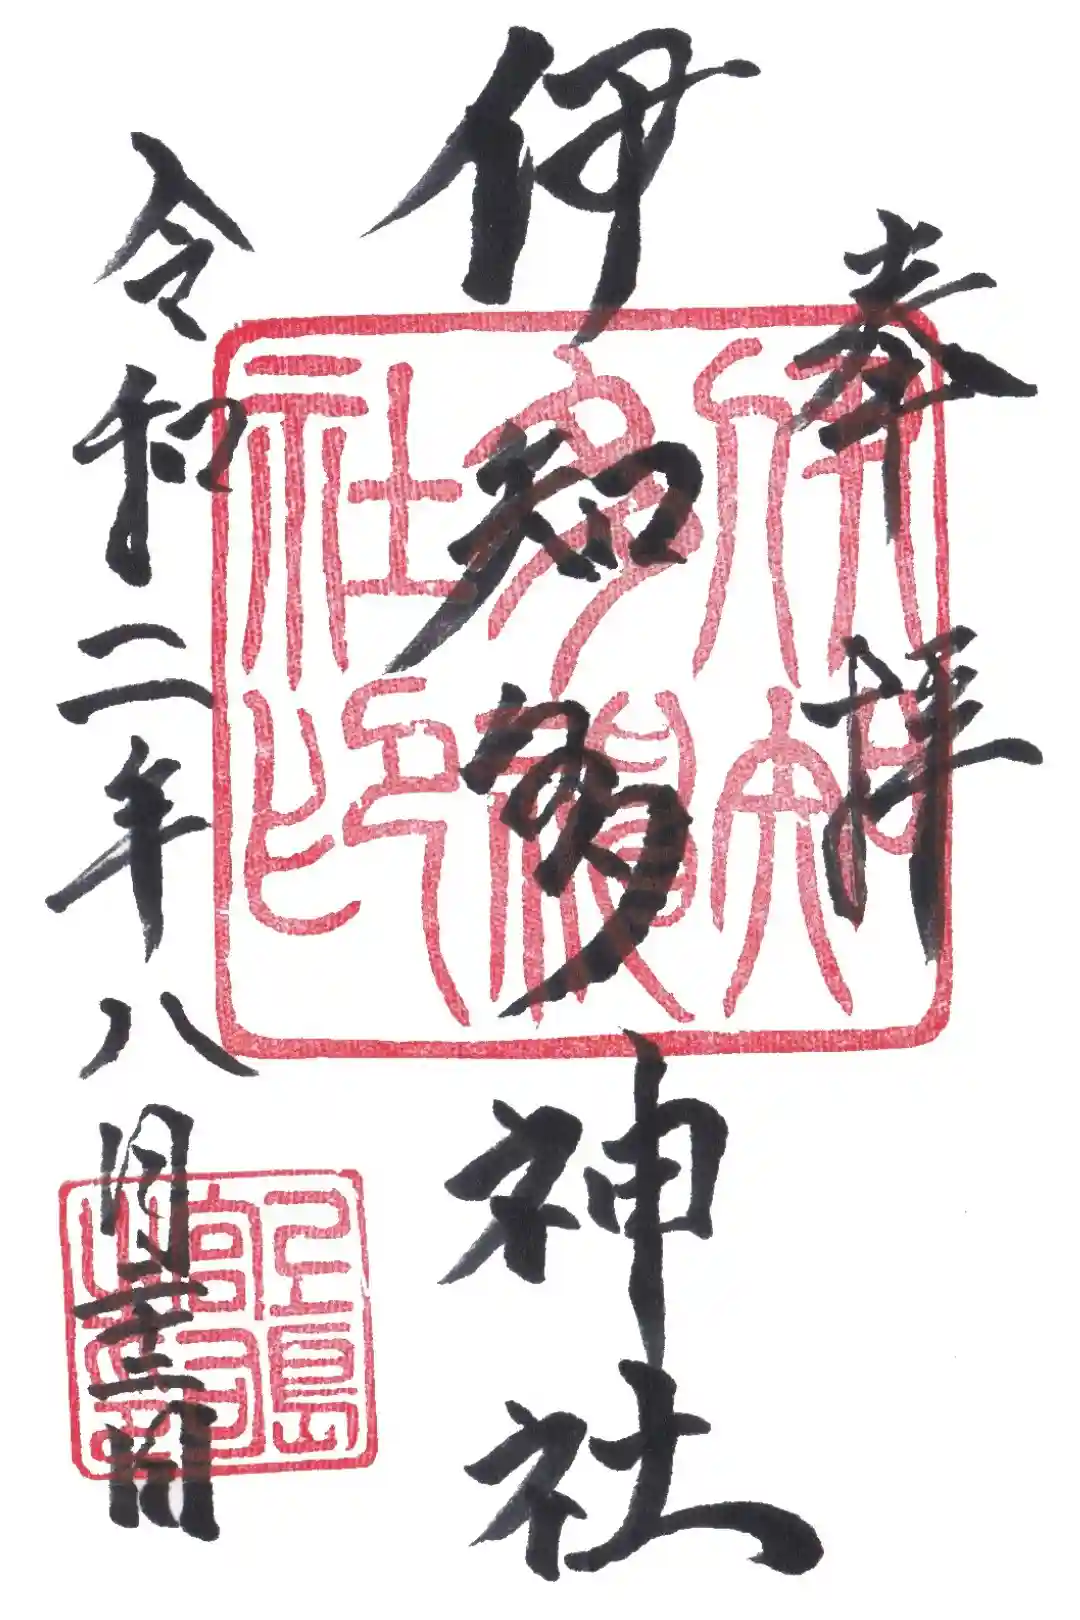 奉拝
伊知多神社
令和二年八月二十三日
伊知
多神
社印